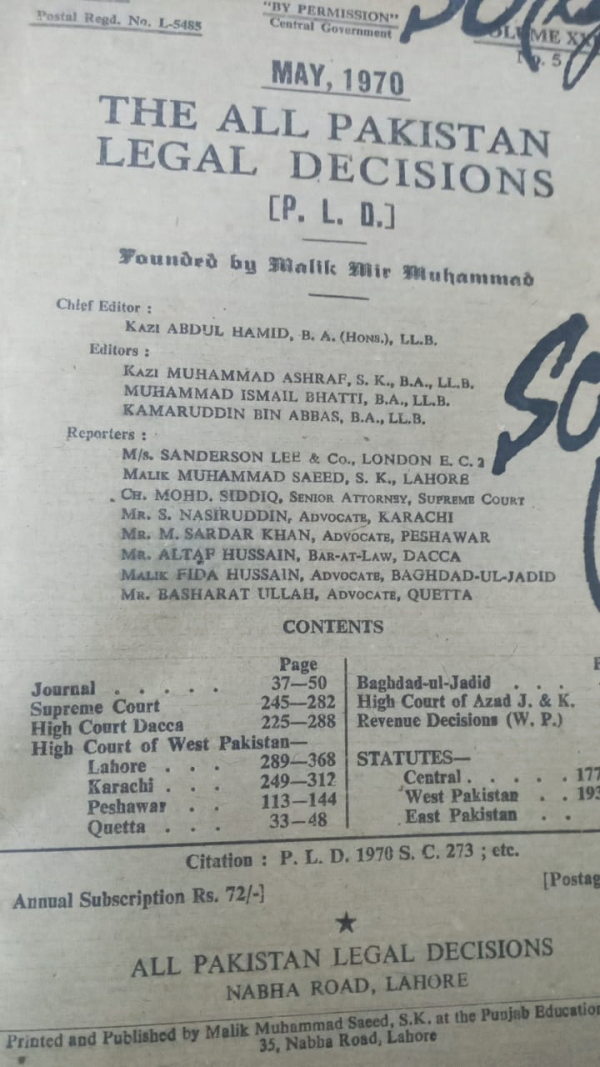 Postal Regd. No. L-5485
"BY PERMISSION"
Central Government
VOLUME XX
No. 5
MAY, 1970
THE ALL PAKISTAN
LEGAL DECISIONS
[P. L. D.]
Founded by Malik Mir Muhammad
Chief Editor :
KAZI ABDUL HAMID, B. A. (HONS.), LL.B.
Editors :
KAZI MUHAMMAD ASHRAF, S. K., B.A., LL.B.
MUHAMMAD ISMAIL BHATTI, B.A., LL.B.
KAMARUDDIN BIN ABBAS, B.A., LL.B.
Reporters :
M/s. SANDERSON LEE & Co., LONDON E. C. 2
MALIK MUHAMMAD SAEED, S. K., LAHORE
CH. MOHD. SIDDIQ, SENIOR ATTORNEY, SUPREME COURT
MR. S. NASIRUDDIN, ADVOCATE, KARACHI
MR. M. SARDAR KHAN, ADVOCATE, PESHAWAR
MR. ALTAF HUSSAIN, BAR-AT-LAW, DACCA
MALIK FIDA HUSSAIN, ADVOCATE, BAGHDAD-UL-JADID
MR. BASHARAT ULLAH, ADVOCATE, QUETTA
CONTENTS
Page
Journal . . . . . 37—50
Supreme Court 245—282
High Court Dacca 225—288
High Court of West Pakistan—
Lahore . . . 289—368
Karachi . . . 249—312
Peshawar . . 113—144
Quetta . . . 33—48
Baghdad-ul-Jadid . . .
High Court of Azad J. & K.
Revenue Decisions (W. P.)
STATUTES—
Central . . . . . 177
West Pakistan . . 193
East Pakistan . .
Citation : P. L. D. 1970 S. C. 273 ; etc.
Annual Subscription Rs. 72/-]
[Postag
★
ALL PAKISTAN LEGAL DECISIONS
NABHA ROAD, LAHORE
Printed and Published by Malik Muhammad Saeed, S.K. at the Punjab Education
35, Nabha Road, Lahore